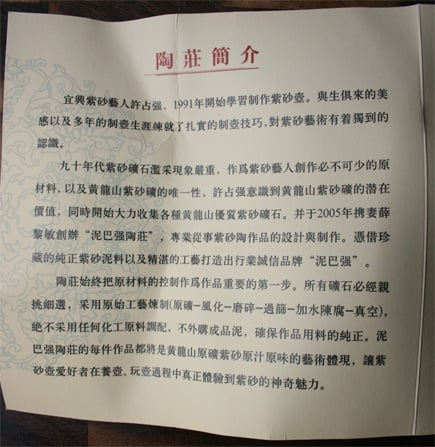 陶莊簡介
宜興紫砂藝人許占强，1991年開始學習制作紫砂壺。與生俱來的美
感以及多年的制壺生涯練就了扎實的制壺技巧，對紫砂藝術有着獨到的
認識。
九十年代紫砂礦石濫采現象嚴重，作爲紫砂藝人創作必不可少的原
材料，以及黄龍山紫砂礦的唯一性，許占强意識到黄龍山紫砂礦的潜在
價值，同時開始大力收集各種黄龍山優質紫砂礦石。并于2005年携妻薛
黎敏創辦“泥巴强陶莊”，專業從事紫砂陶作品的設計與制作。憑借珍
藏的純正紫砂泥料以及精湛的工藝打造出行業誠信品牌“泥巴强”。
陶莊始終把原材料的控制作爲作品重要的第一步。所有礦石必經親
挑細選，采用原始工藝煉制(原礦—風化—磨碎—過篩—加水陳腐—真空)，
絶不采用任何化工原料調配，不外購成品泥，確保作品用料的純正。泥
巴强陶莊的每件作品都將是黄龍山原礦紫砂原汁原味的藝術體現，讓紫
砂壺愛好者在養壺、玩壺過程中真正體驗到紫砂的神奇魅力。